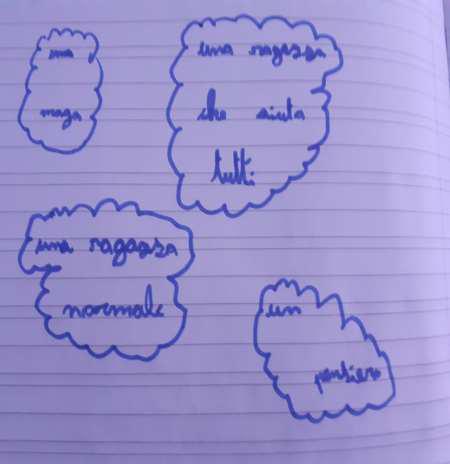 una
maga
una ragazza
che aiuta
tutti
una ragazza
normale
un
pensiero